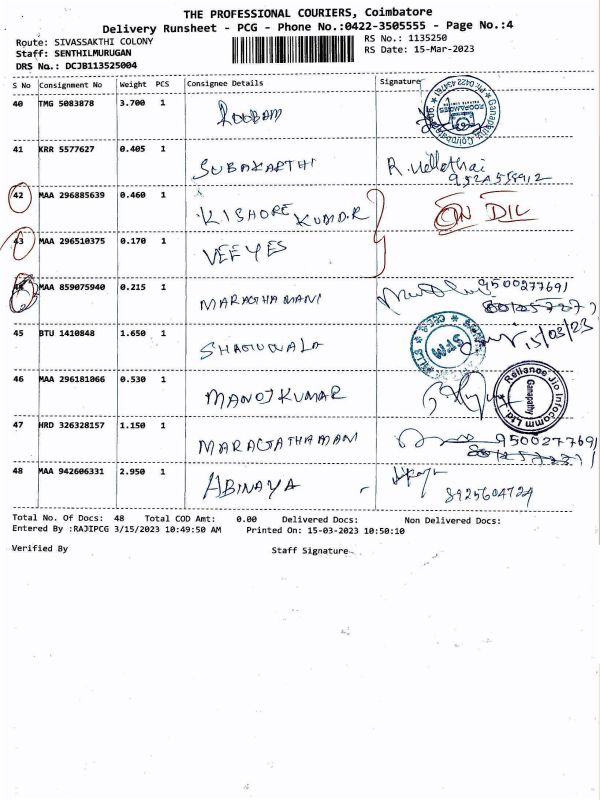 THE PROFESSIONAL COURIERS, Coimbatore
Delivery Runsheet - PCG - Phone No.:0422-3505555 - Page No.:4
Route: SIVASSAKTHI COLONY
RS No.: 1135250
Staff: SENTHILMURUGAN
RS Date: 15-Mar-2023
DRS No.: DCJB113525004
S No Consignment No Weight PCS Consignee Details Signature
40 TMG 5083878 3.700 1 ROOBAM
41 KRR 5577627 0.405 1 SUBAKARTHI
42 MAA 296885639 0.460 1 KISHORE KUMAR ON DIL
43 MAA 296510375 0.170 1 VEEYES
MAA 859075940 0.215 1 MARAGTHAMANI 9500277691
45 BTU 1410848 1.650 1 15/03/23
SFM
46 MAA 296181066 0.530 1 MANOJKUMAR
Reliance Jio Infocomm Ltd.
Ganapathy
47 HRD 326328157 1.150 1 MARAGATHAMANI 9500277691
48 MAA 942606331 2.950 1 ABINAYA 8925604724
Total No. Of Docs: 48 Total COD Amt: 0.00 Delivered Docs: Non Delivered Docs:
Entered By :RAJIPCG 3/15/2023 10:49:50 AM Printed On: 15-03-2023 10:50:10
Verified By Staff Signature